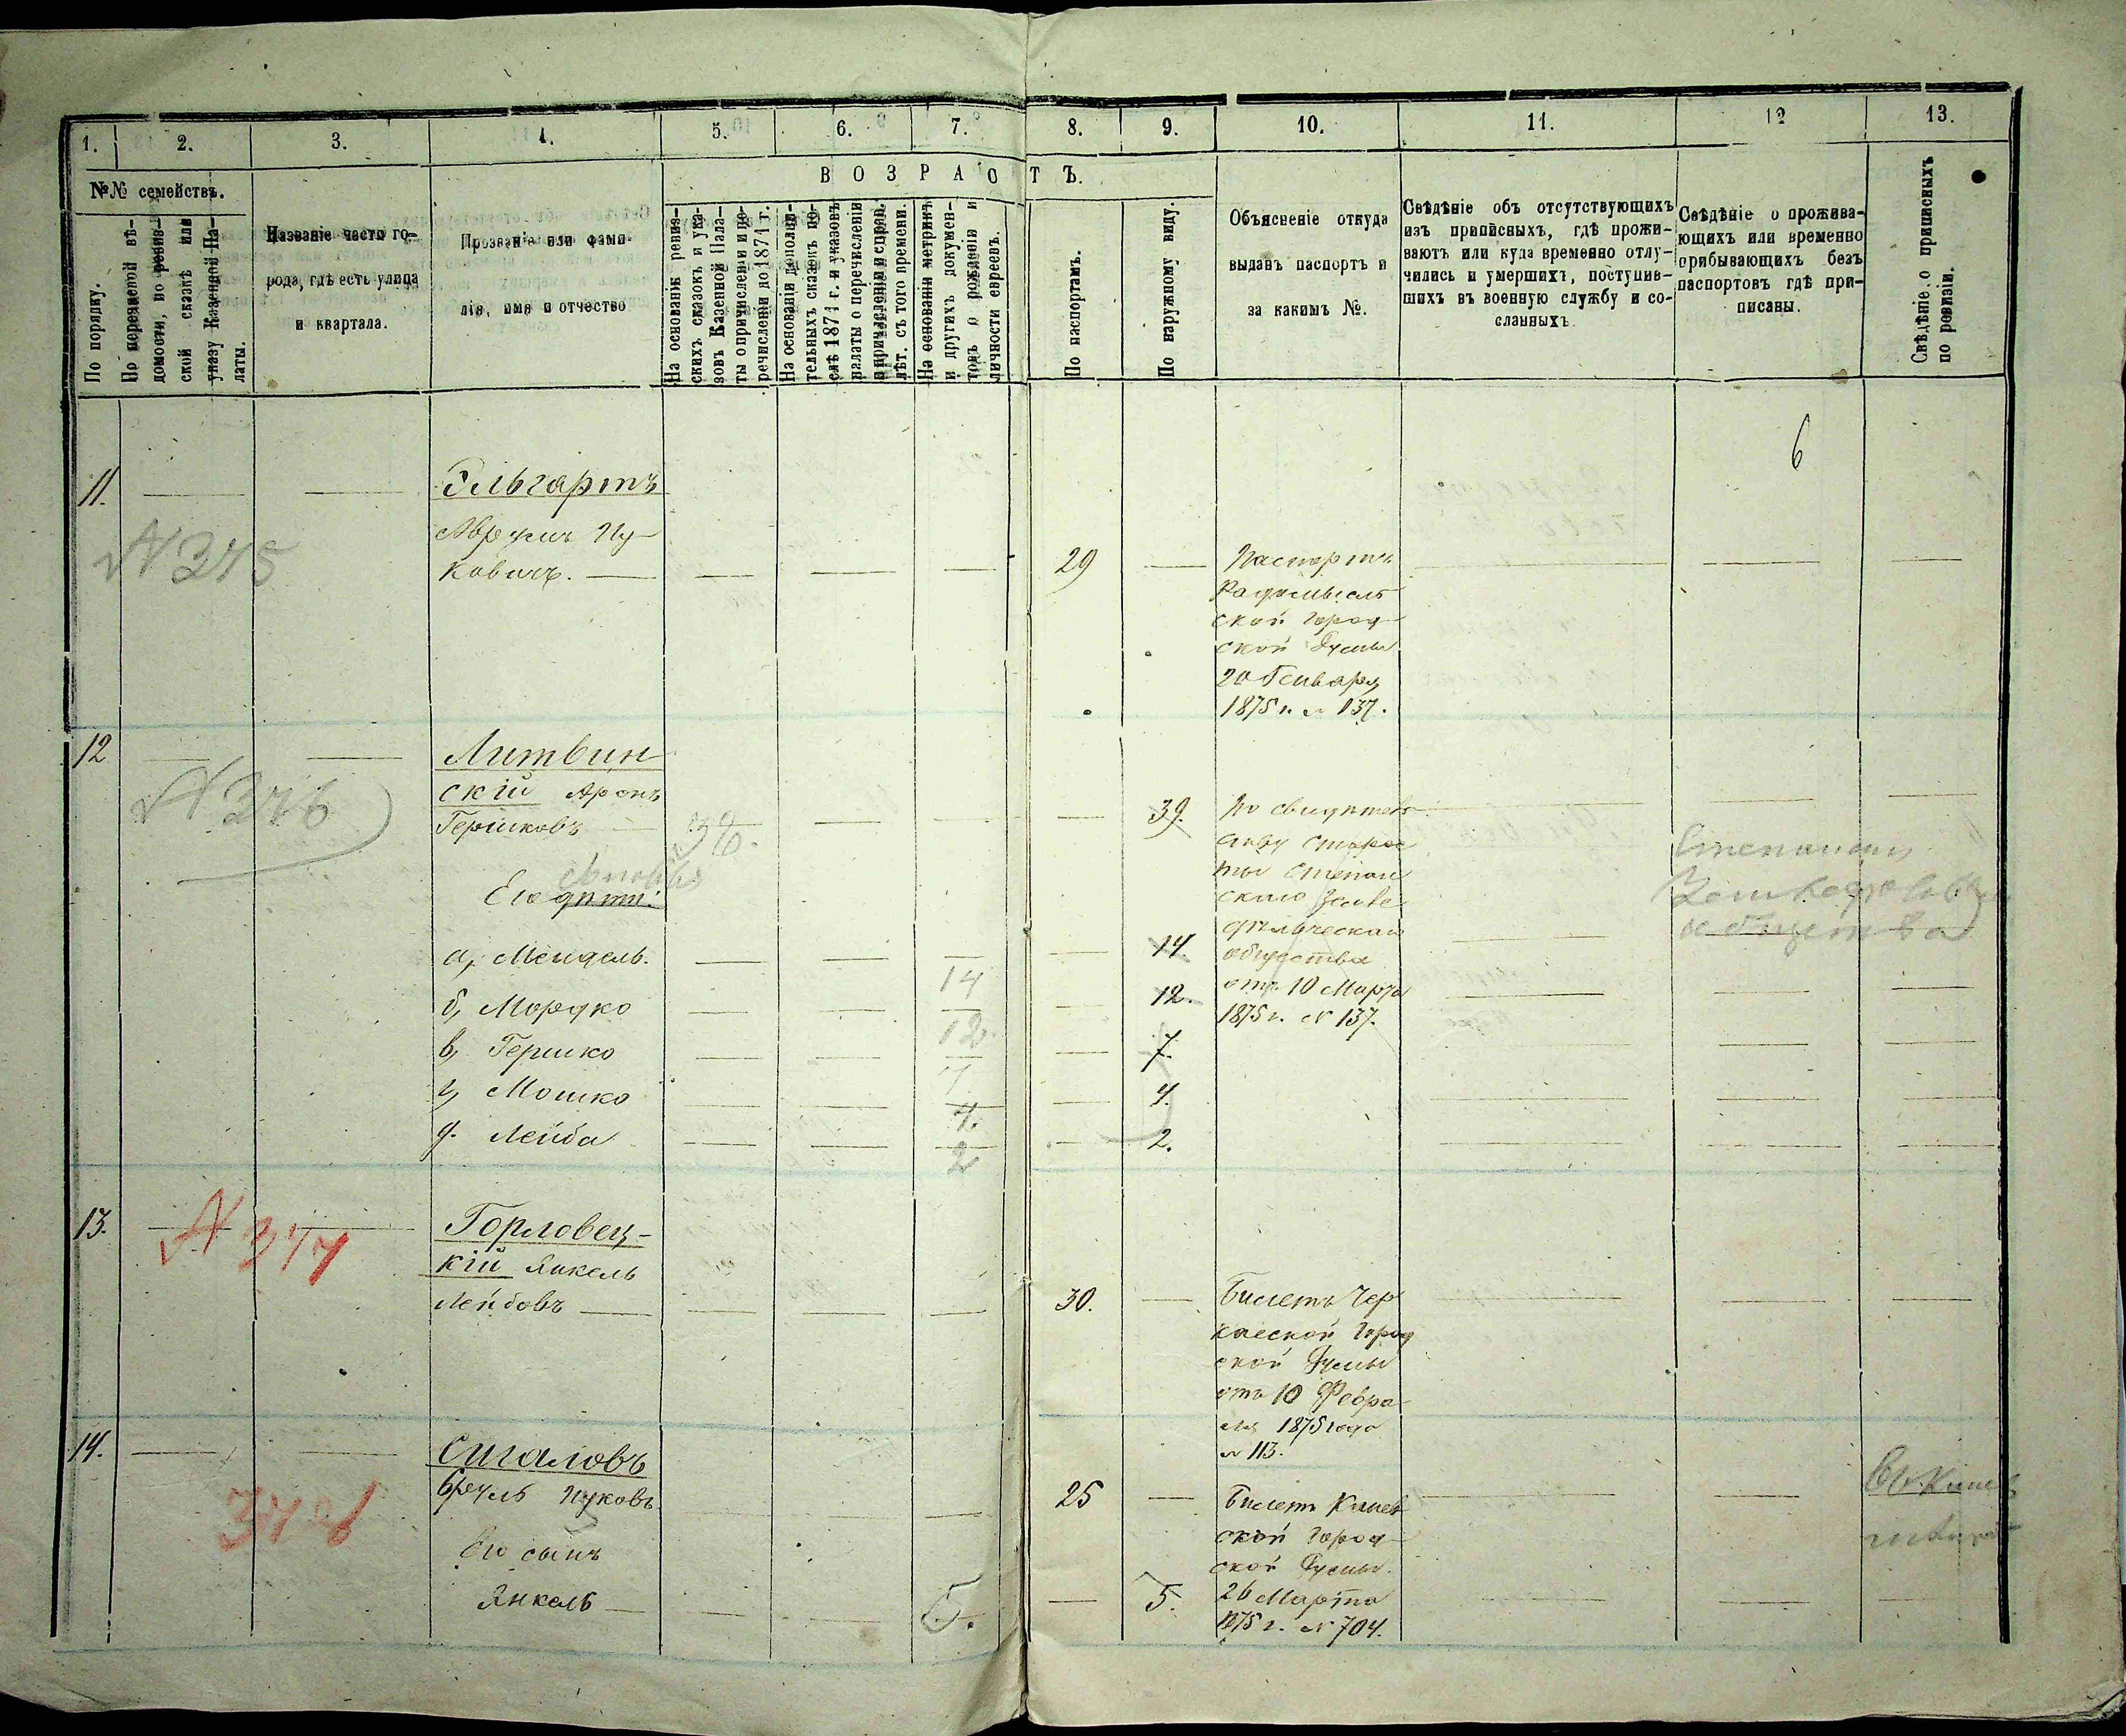 1. 2. 3. 4. 5. 6. 7. 8. 9. 10. 11. 12 13.
№№ семействъ.
В О З Р А С Т Ъ.
По порядку.
По переписной вѣ-
домости, по ревиз-
ской сказкѣ или
указу Казенной Па-
латы.
Названіе части го-
рода, гдѣ есть улица
и квартала.
Прозваніе или фами-
лія, имя и отчество
На основаніи ревиз-
скихъ сказокъ и ука-
зовъ Казенной Пала-
ты о причисленіи и пе-
речисленіи до 1871 г.
На основаніи дополни-
тельныхъ сказокъ по-
слѣ 1871 г. и указовъ
палаты о перечисленіи
лѣт. съ того времени.
На основаніи метрикъ
и другихъ докумен-
товъ о рожденіи и
личности евреевъ.
По паспортамъ.
По наружному виду.
Объясненіе откуда
выданъ паспортъ и
за какимъ №.
Свѣдѣніе объ отсутствующихъ
изъ приписныхъ, гдѣ прожи-
ваютъ или куда временно отлу-
чились и умершихъ, поступив-
шихъ въ военную службу и со-
сланныхъ.
Свѣдѣніе о прожива-
ющихъ или временно
прибывающихъ безъ
паспортовъ гдѣ при-
писаны.
Свѣдѣніе о приписныхъ
по ревизіи.
6
11.
N 345
Эльгартъ
Аврумъ Иц-
ковичъ.
29
Паспортъ
Радомысль
ской Город-
ской Думы
20 Генваря
1875 г. N 137.
12
N 346
Литвин-
скій Аронъ
Гершковъ
38.
39.
Его дѣти:
а, Мендель.
14
14.
б, Мордко
12.
12.
в, Гершко
7
7.
г, Мошко
4.
4.
д. Лейба
2
2.
по свидѣтель
ству старос
ты Степан
скаго Земле
дѣльческаго
общества
отъ 10 Марта
1875 г. N 137.
общества
13.
N 347
Горловец-
кій Янкель
Лейбовъ
30.
Билетъ Чер
касской Город
ской Думы
отъ 10 Февра
ля 1875 года
N 113.
14.
348
Сигаловъ
Ицковъ.
25
Его сынъ
Янкель
5.
5.
Билетъ Киев
ской Город-
ской Думы.
26 Марта
1875 г. N 704.